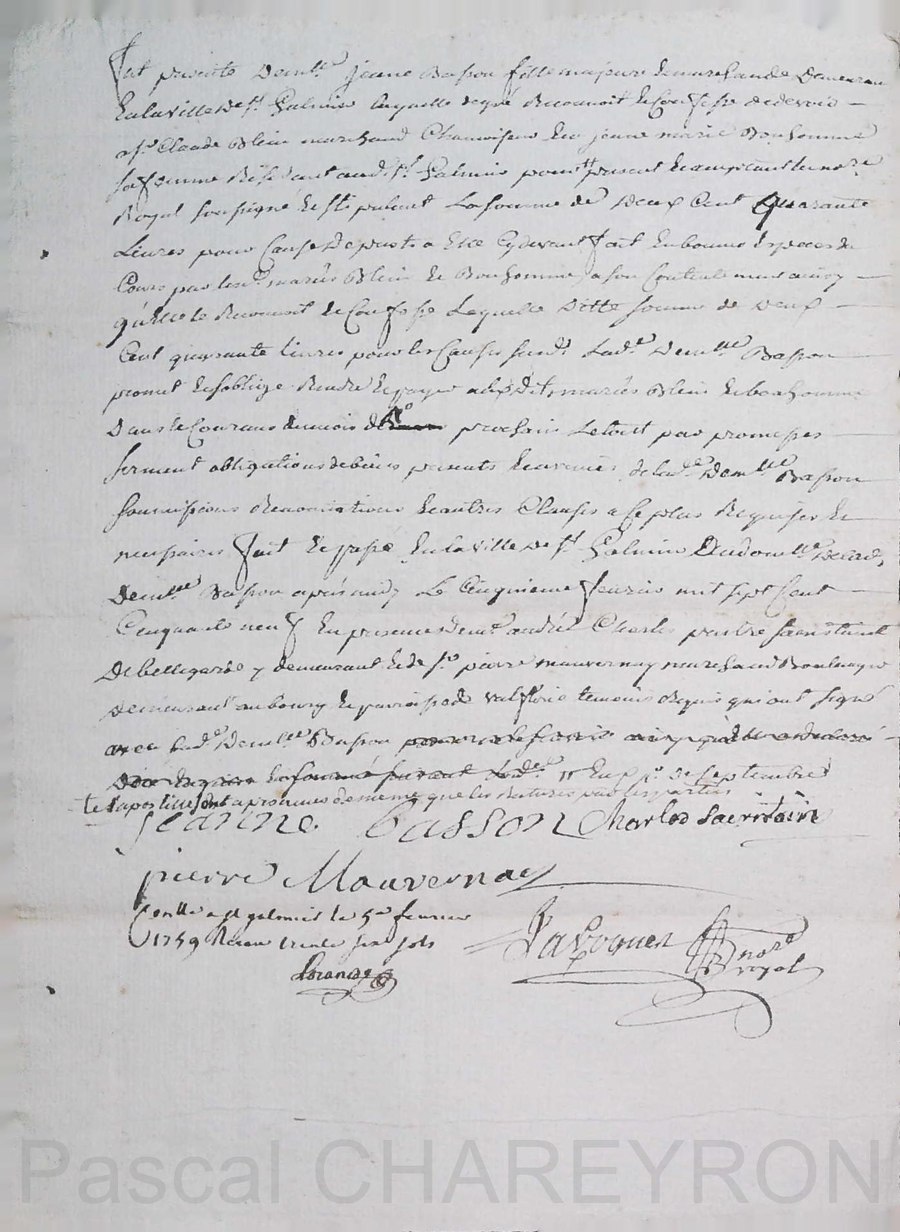 fut presente Demlle jeane Basson fille majeure et marchande Demeurant
En la ville de st Galmier laquelle de gré Reconnoit et Confesse de devoir
a sr Claude Blein marchand Chamoiseur et a jeane marie Bonhomme
sa femme Résidant audit st Galmier pour ttt present et acceptant le nore
Royal soussigné Estipulant La somme de Deux Cent Quarante
Livres pour Cause De prest a Elle Cy devant fait En bonnes Especes de
Cours par lesd. mariés Blein et Bonhomme a son Contentement ainsy
qu'elle le Reconnoit et Confesse Laquelle Ditte somme de Deux
Cent quarante Livres pour les Causes susd. Lade Demlle Basson
promet et s'oblige Rendre et payer auxdits mariés Blein et bonhomme
Dans le Courant du mois de prochain Le tout par promesses
serment obligations de biens presents et avenirs de lade Demlle Basson
soumissions Renonciations et autres Clauses a ce plus Requises et
necessaires fait et passé En la ville de st Galmier Domlle De lade
Demlle Basson après midy Le Cinquieme fevrier mil sept Cent
Cinquante neuf En presence de mr Charles
De bellegarde y demeurant et de sr pierre mauvernay marchand Boulanger
Demeurant au bourg et paroisse de temoins Requis qui ont signé
avec lade Demlle Basson
de septembre
apostilles sont aprouvées de meme que les Ratures par les parties
jeanne basson Charles Sacritain
pierre Mauvernay
Conlle a st galmier le 5e fevrier
1759 Receu trente six sols
nore
royal